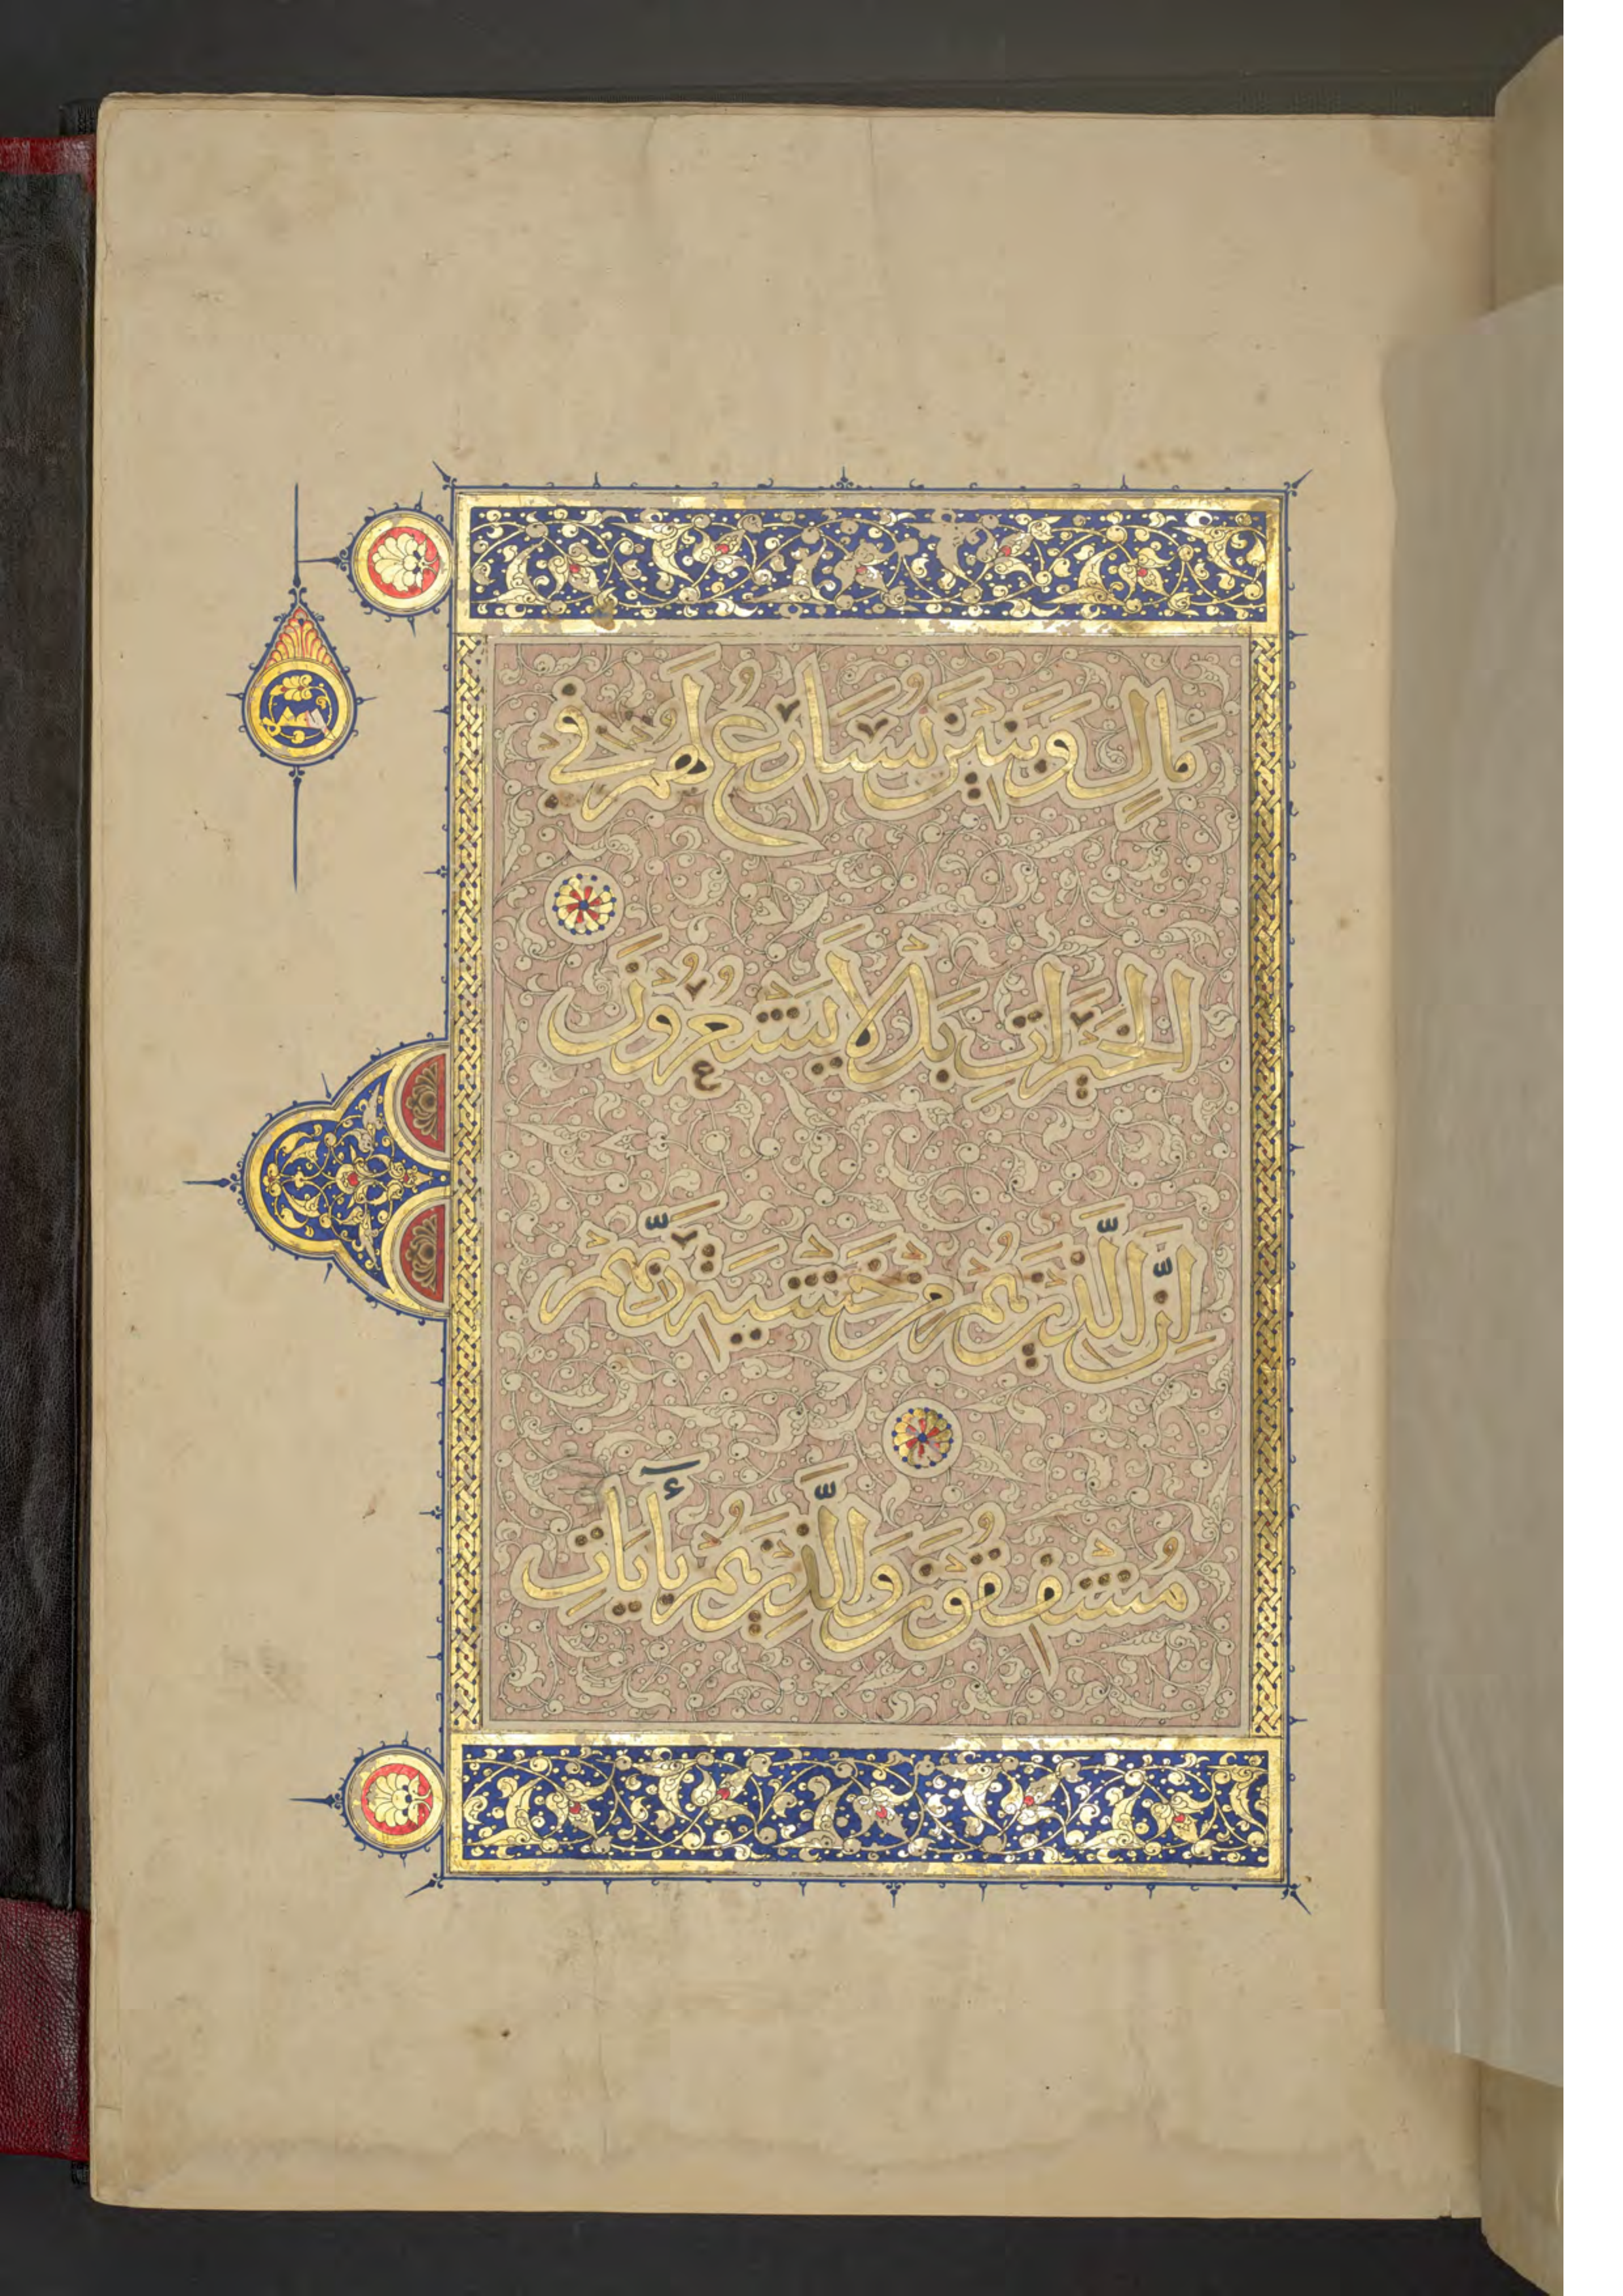 مَالٍ وَبَنِينَ نُسَارِعُ لَهُمْ فِي
الْخَيْرَاتِ بَل لَا يَشْعُرُونَ
إِنَّ الَّذِينَ هُم مِنْ خَشْيَةِ رَبِّهِمْ
مُشْفِقُونَ وَالَّذِينَ هُمْ بِأَيَاتِ